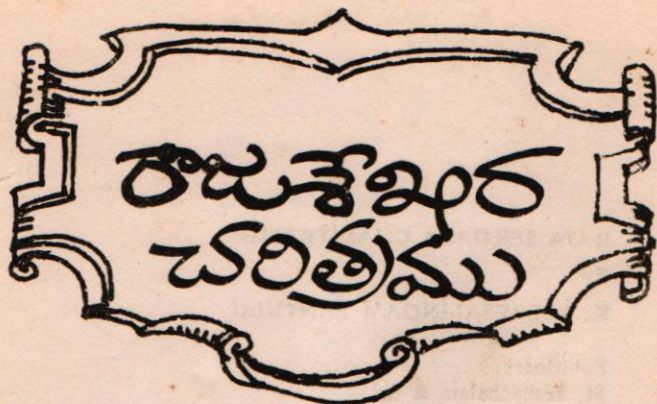 రాజశేఖర
చరిత్రము